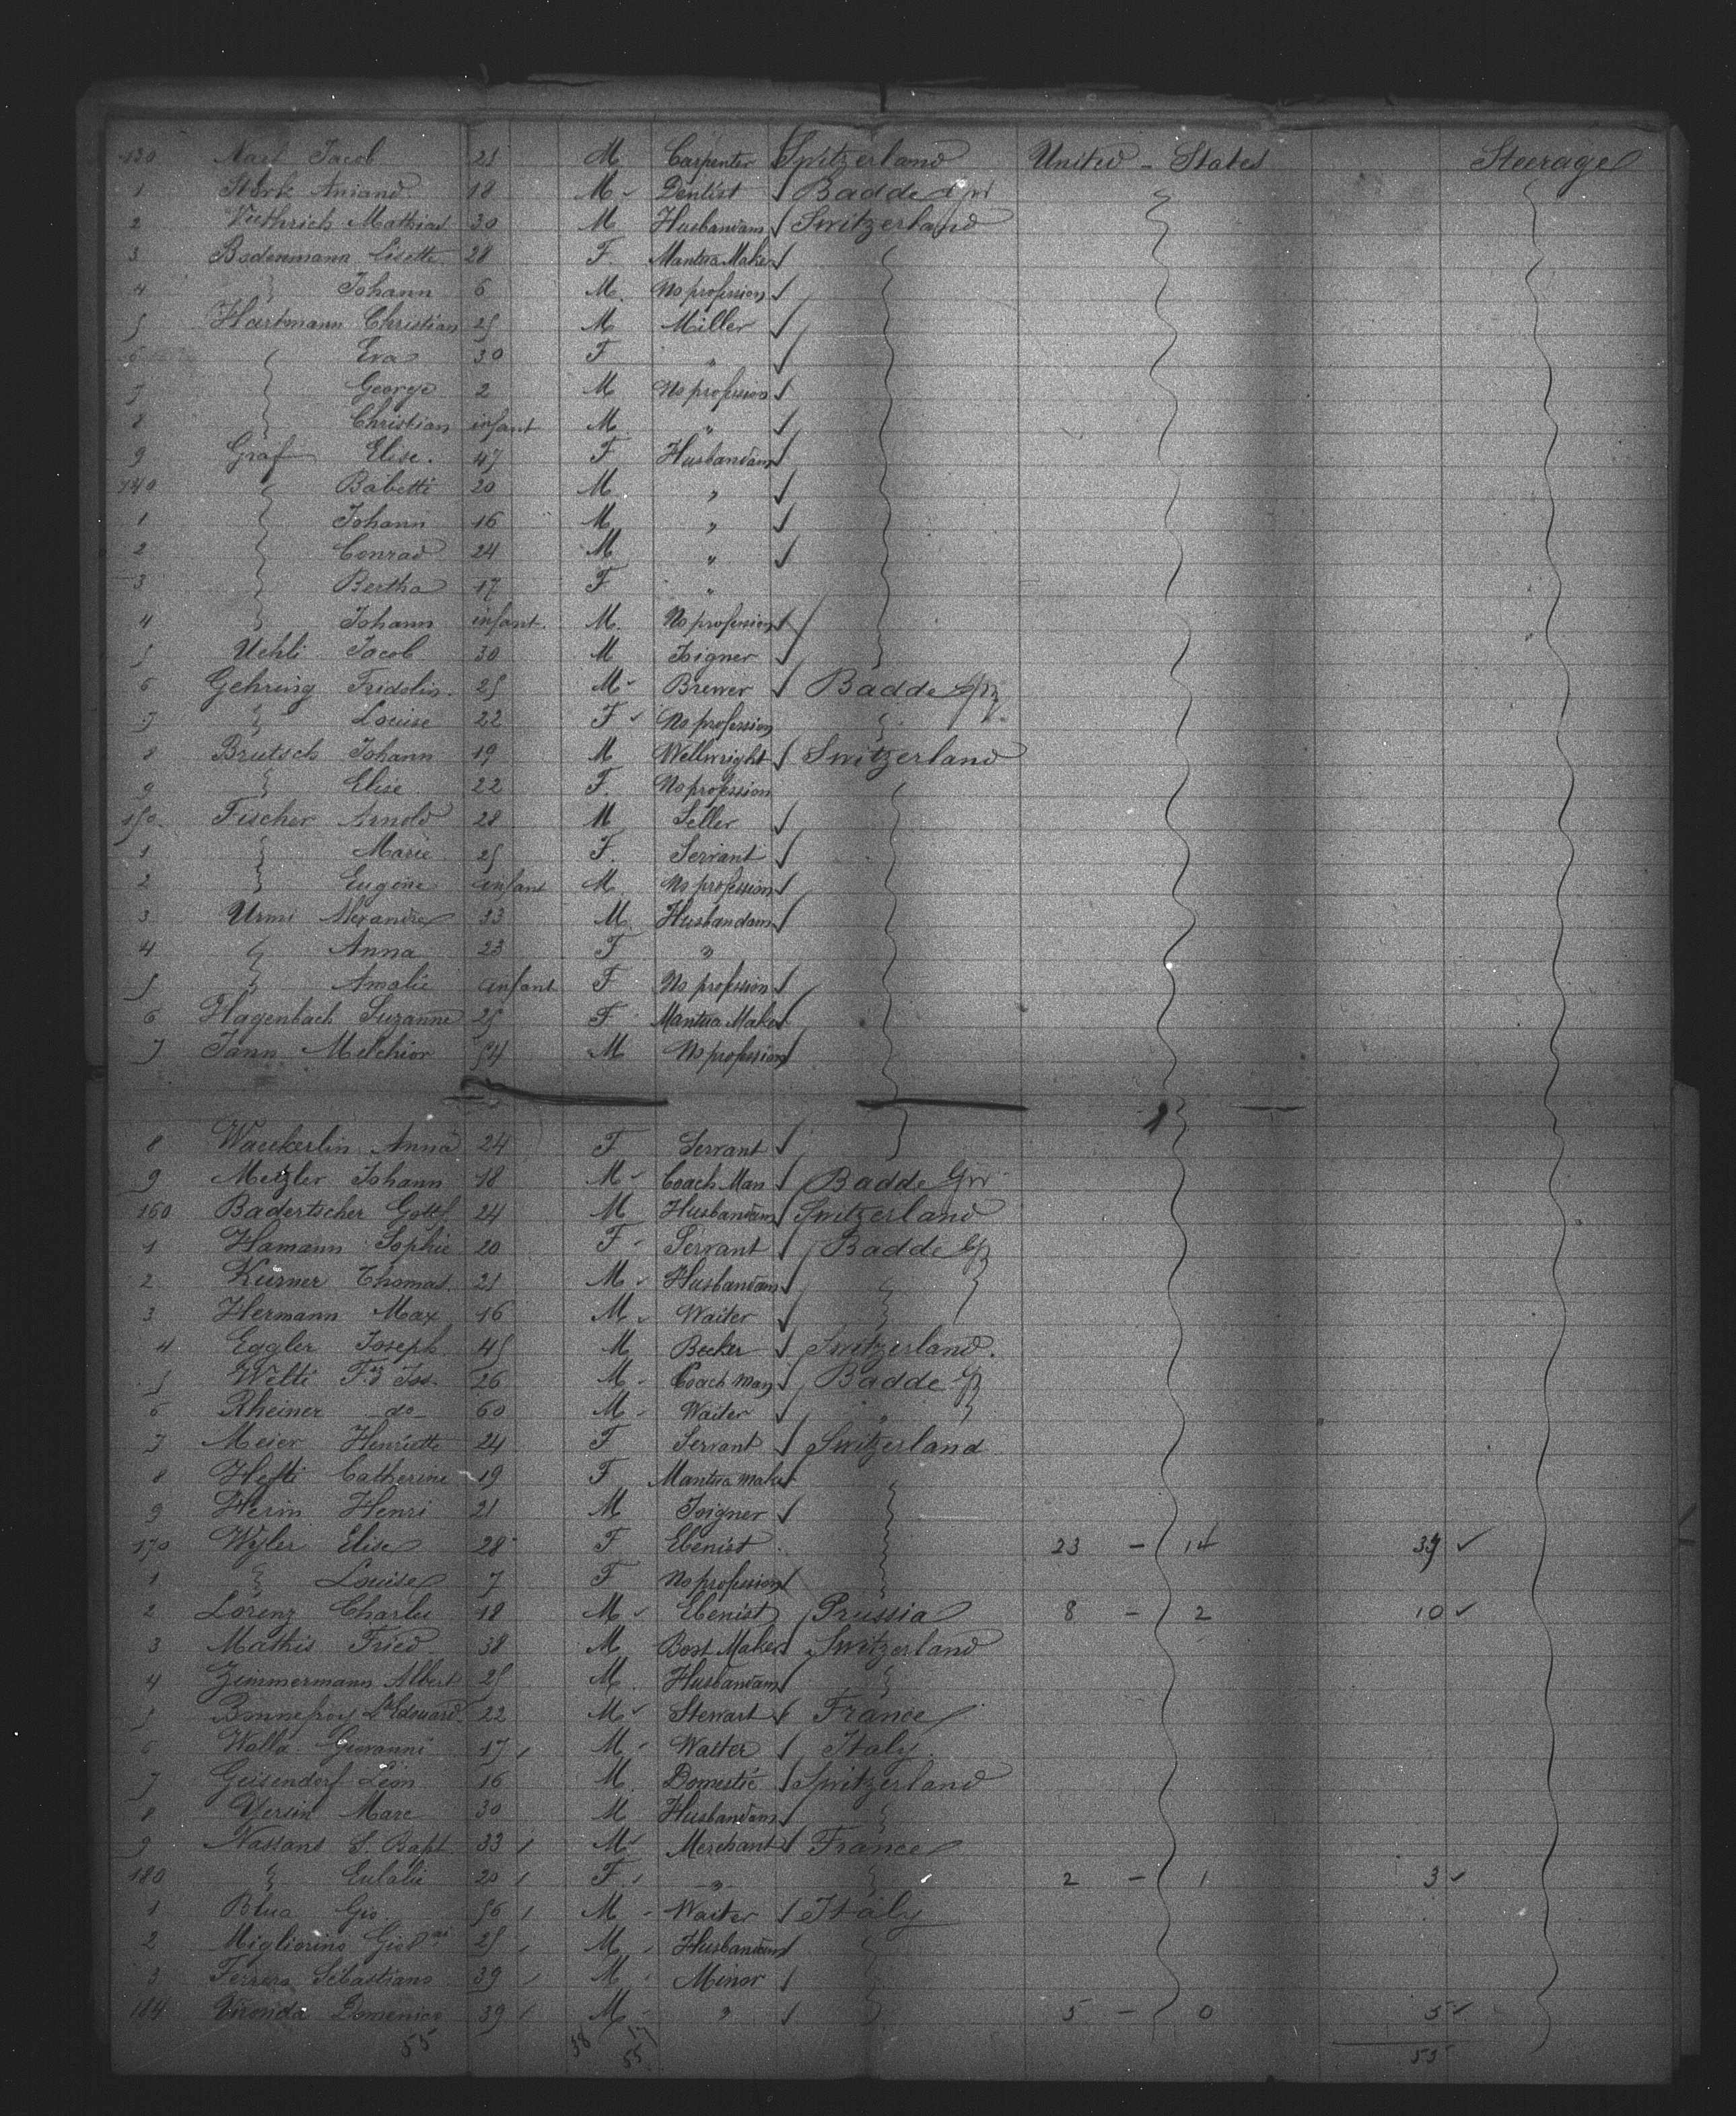 130 Naef Jacob 25 M Carpenter Switzerland United - States Steerage
1 Stork Amand 18 M Dentist Badde
2 Wuthrich Mathias 30 M Husbandam Switzerland
3 Bodenmann Lisette 28 F. Mantua Maker
4 " Johann 6 M. No profession
5 Hartmann Christian 25 M Miller
6 " Eva 30 F "
7 " George 2 M No profession
8 " Christian infant M "
9 Graf Elise. 47 F Husbandam
140 " Babette 20 M "
1 " Johann 16 M "
2 " Conrad 24 M "
3 " Bertha 17 F "
4 " Johann infant. M. No profession
5 Uehli Jacob 30 M Joigner
6 Gehring Fridolin. 25 M Brewer Badde
7 " Louise 22 F No profession "
8 Brutsch Johann 19 M Wellwright Switzerland
9 " Elise 22 F. No profession
150 Fischer Arnold 28 M Seller
1 " Marie 25 F. Servant
2 " Eugene infant M No profession
3 Urmi Alexandre 33 M Husbandam
4 " Anna 23 F "
5 " Amalie infant F No profession
6 Hagenbach Suzanne 25 F Mantua Maker
7 Jann Melchior 54 M No profession
8 Waeckerlin Anna 24 F Servant
9 Metzler Johann 18 M Coach Man Badde
160 Badertscher Gottf 24 M Husbandam Switzerland
1 Hamann Sophie 20 F Servant Badde
2 Kurner Thomas. 21 M Husbandam "
3 Hermann Max 16 M Waiter "
4 Eggler Joseph 45 M Becker Switzerland.
5 Welti Fz Jos. 26 M Coach Man Badde
6 Rheiner do 60 M Waiter "
7 Meier Henriette 24 F Servant Switzerland
8 Hefti Catherine 19 F Mantua Maker
9 Herin Henri 21 M Joigner
170 Wyler Elise 28 F Ebenist 23 - 14 37
1 " Louise 7 F No profession
2 Lorenz Charles 18 M Ebenist Prussia 8 - 2 10
3 Mathis Fried 38 M Boot Maker Switzerland
4 Zimmermann Albert 25 M. Husbandam "
5 Bonnefoy Edouard 22 M Stewart France
6 Walla Giovanni 17 M Waiter Italy
7 Geisendorf Léon 16 M. Domestic Switzerland
8 Yersin Marc 30 M Husbandam "
9 Nassans J. Bapt 33 M Merchant France
180 " Eulalie 20 F " " 2 - 1 3
1 Blua Gio 56 M Waiter Italy
2 Migliorino 25 M Husbandam
3 Ferrero Sebastiano 39 M Minor
184 Domenico 39 M " 5 - 0 5
55 38 17 55
55